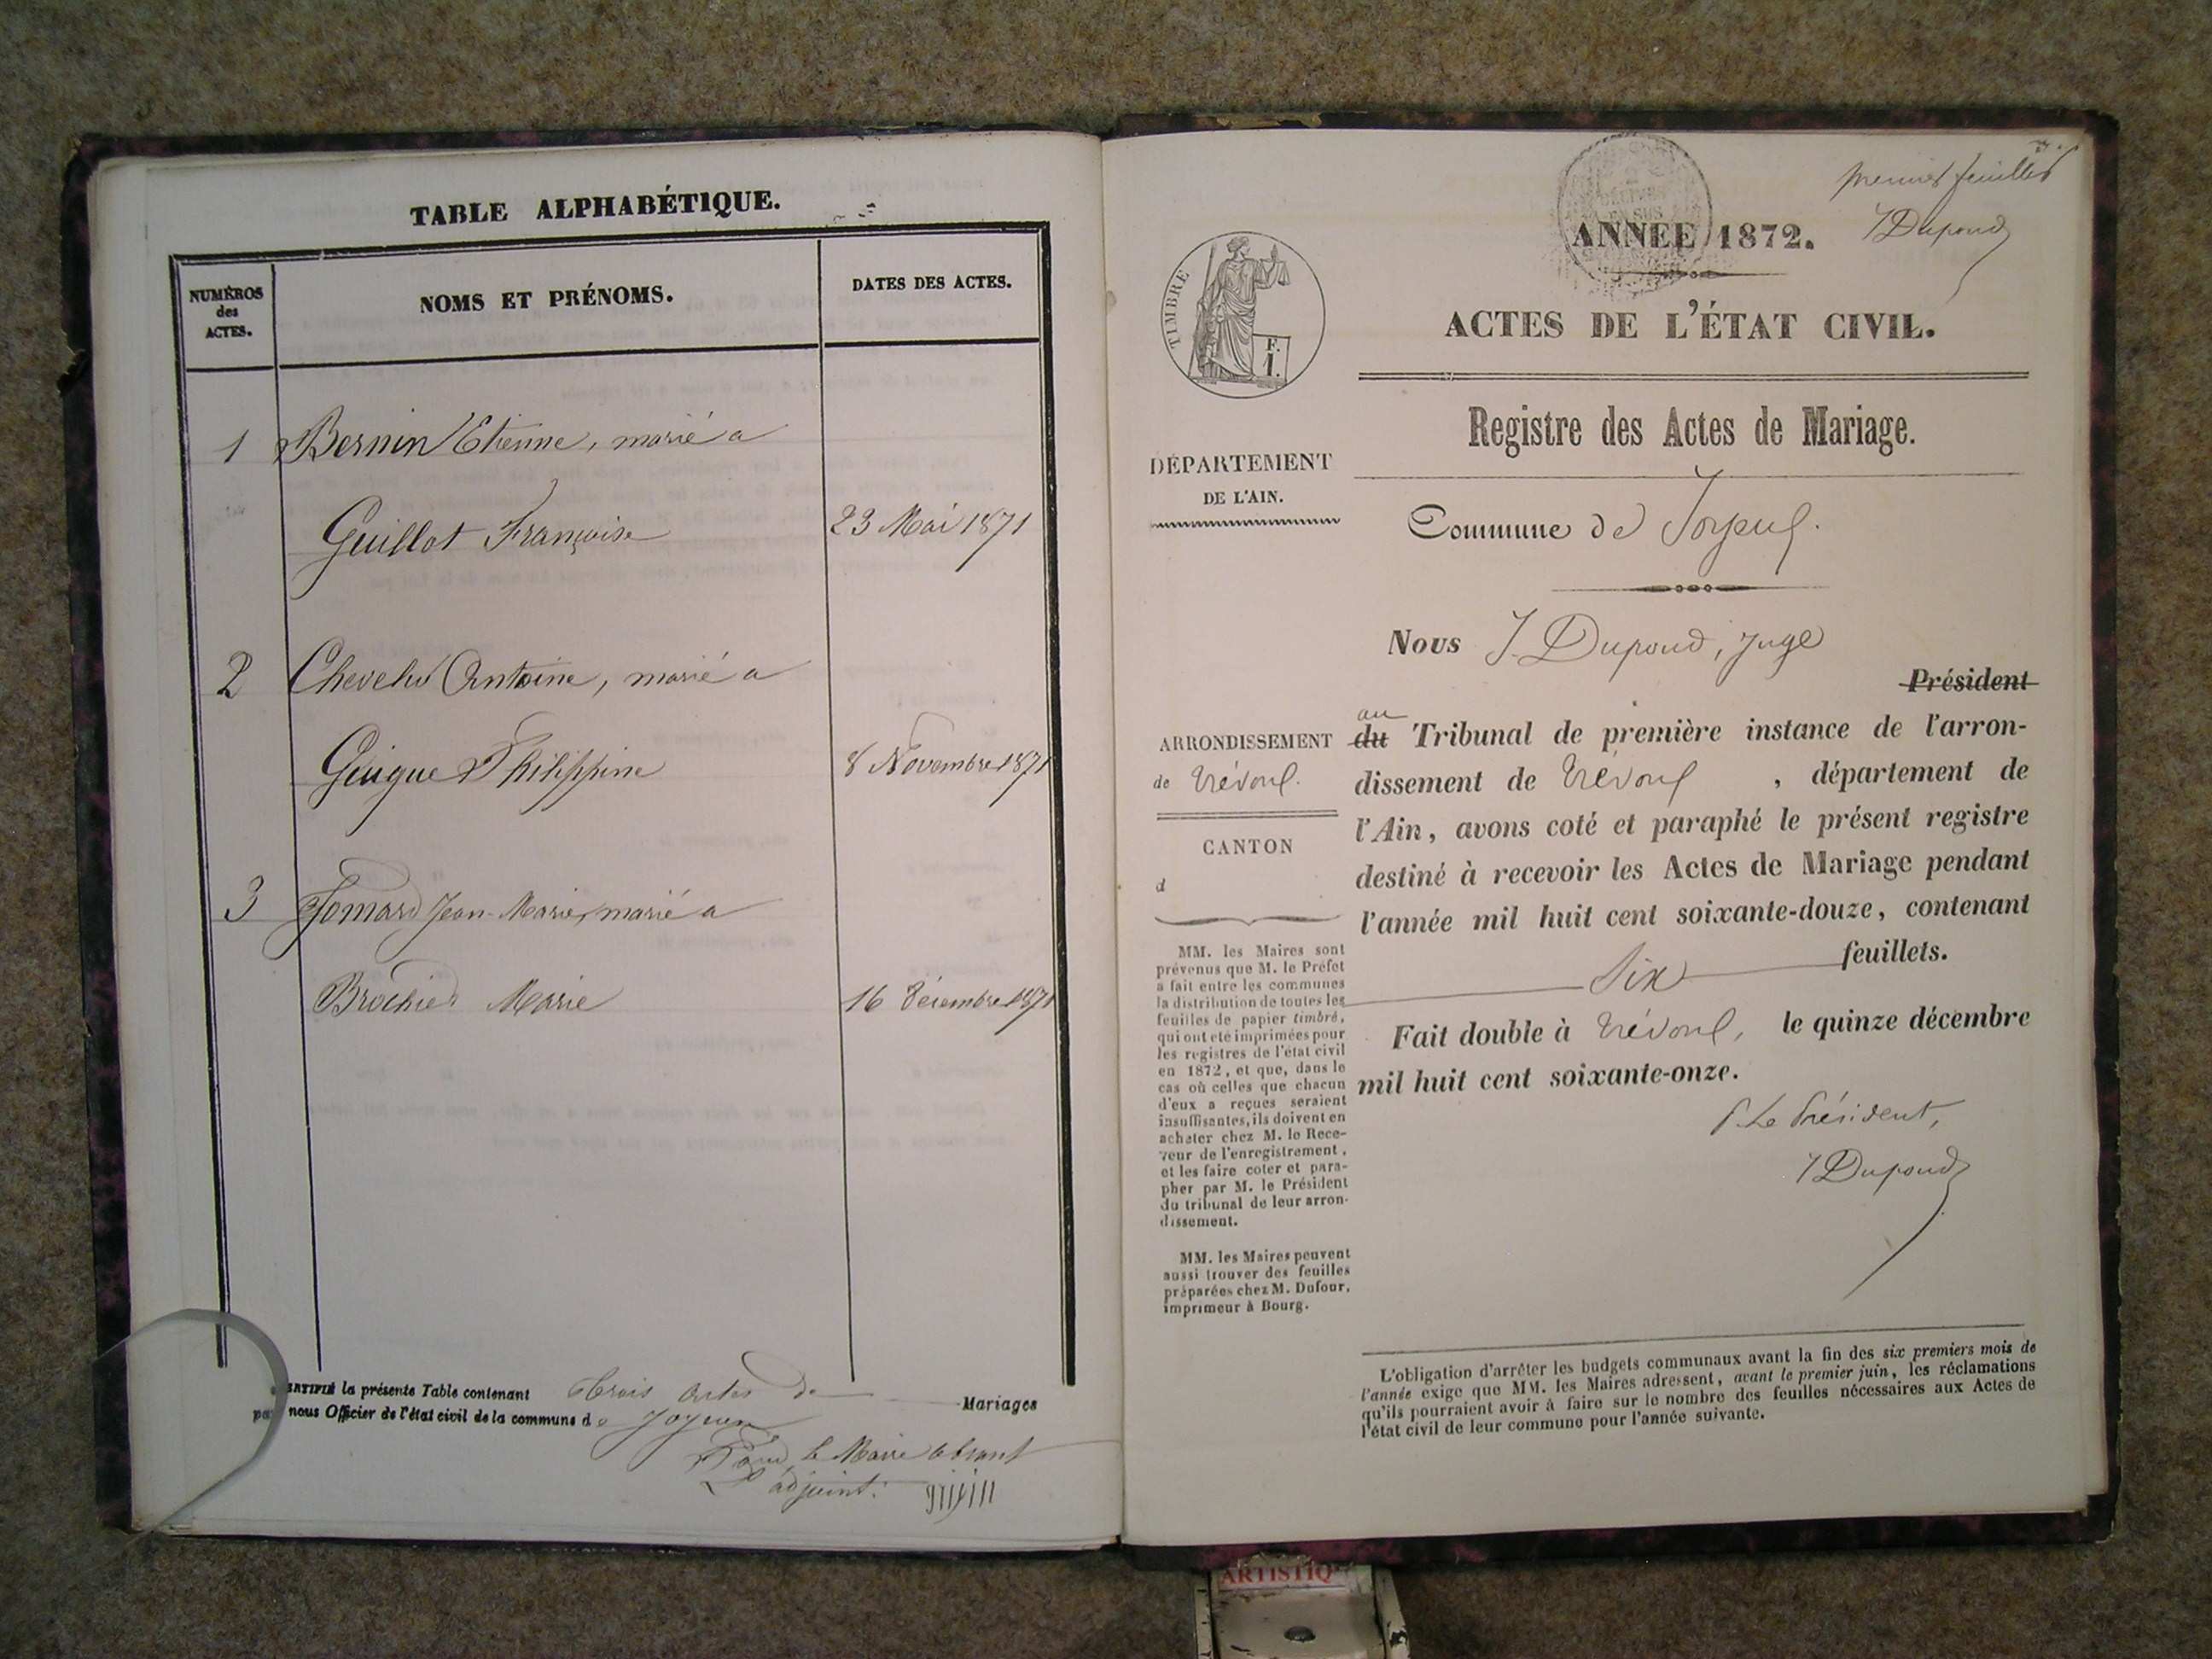 TABLE ALPHABÉTIQUE.
NUMÉROS
des
ACTES.
NOMS ET PRÉNOMS.
DATES DES ACTES.
1 Bernin Etienne, marié a
Guillot Françoise 23 Mai 1871
2 Chevelu Antoine, marié a
Guigue Philippine 8 Novembre 1871
3 Jomard Jean-Marie, marié a
Brochier Marie 16 Décembre 1871
CERTIFIÉ la présente Table contenant trois actes de Mariages
par nous Officier de l'état civil de la commune de Joyeux
Pour le Maire absent
L'adjoint.
3.
premier feuillet
J Dupond
ANNÉE 1872.
TIMBRE
F.
1.
ACTES DE L'ÉTAT CIVIL.
Registre des Actes de Mariage.
DÉPARTEMENT
DE L'AIN.
Commune de Joyeux.
Nous J. Dupond, juge
Président
ARRONDISSEMENT
de Trévoux.
CANTON
d
MM. les Maires sont
prévenus que M. le Préfet
a fait entre les communes
la distribution de toutes les
feuilles de papier timbré,
qui ont été imprimées pour
les registres de l'état civil
en 1872, et que, dans le
cas où celles que chacun
d'eux a reçues seraient
insuffisantes, ils doivent en
acheter chez M. le Rece-
veur de l'enregistrement,
et les faire coter et para-
pher par M. le Président
du tribunal de leur arron-
dissement.
MM. les Maires peuvent
aussi trouver des feuilles
préparées chez M. Dufour,
imprimeur à Bourg.
au
du Tribunal de première instance de l'arron-
dissement de Trévoux, département de
l'Ain, avons coté et paraphé le présent registre
destiné à recevoir les Actes de Mariage pendant
l'année mil huit cent soixante-douze, contenant
Six feuillets.
Fait double à Trévoux, le quinze décembre
mil huit cent soixante-onze.
P. Le Président,
J Dupond
L'obligation d'arrêter les budgets communaux avant la fin des six premiers mois de
l'année exige que MM. les Maires adressent, avant le premier juin, les réclamations
qu'ils pourraient avoir à faire sur le nombre des feuilles nécessaires aux Actes de
l'état civil de leur commune pour l'année suivante.
ARTISTIQ